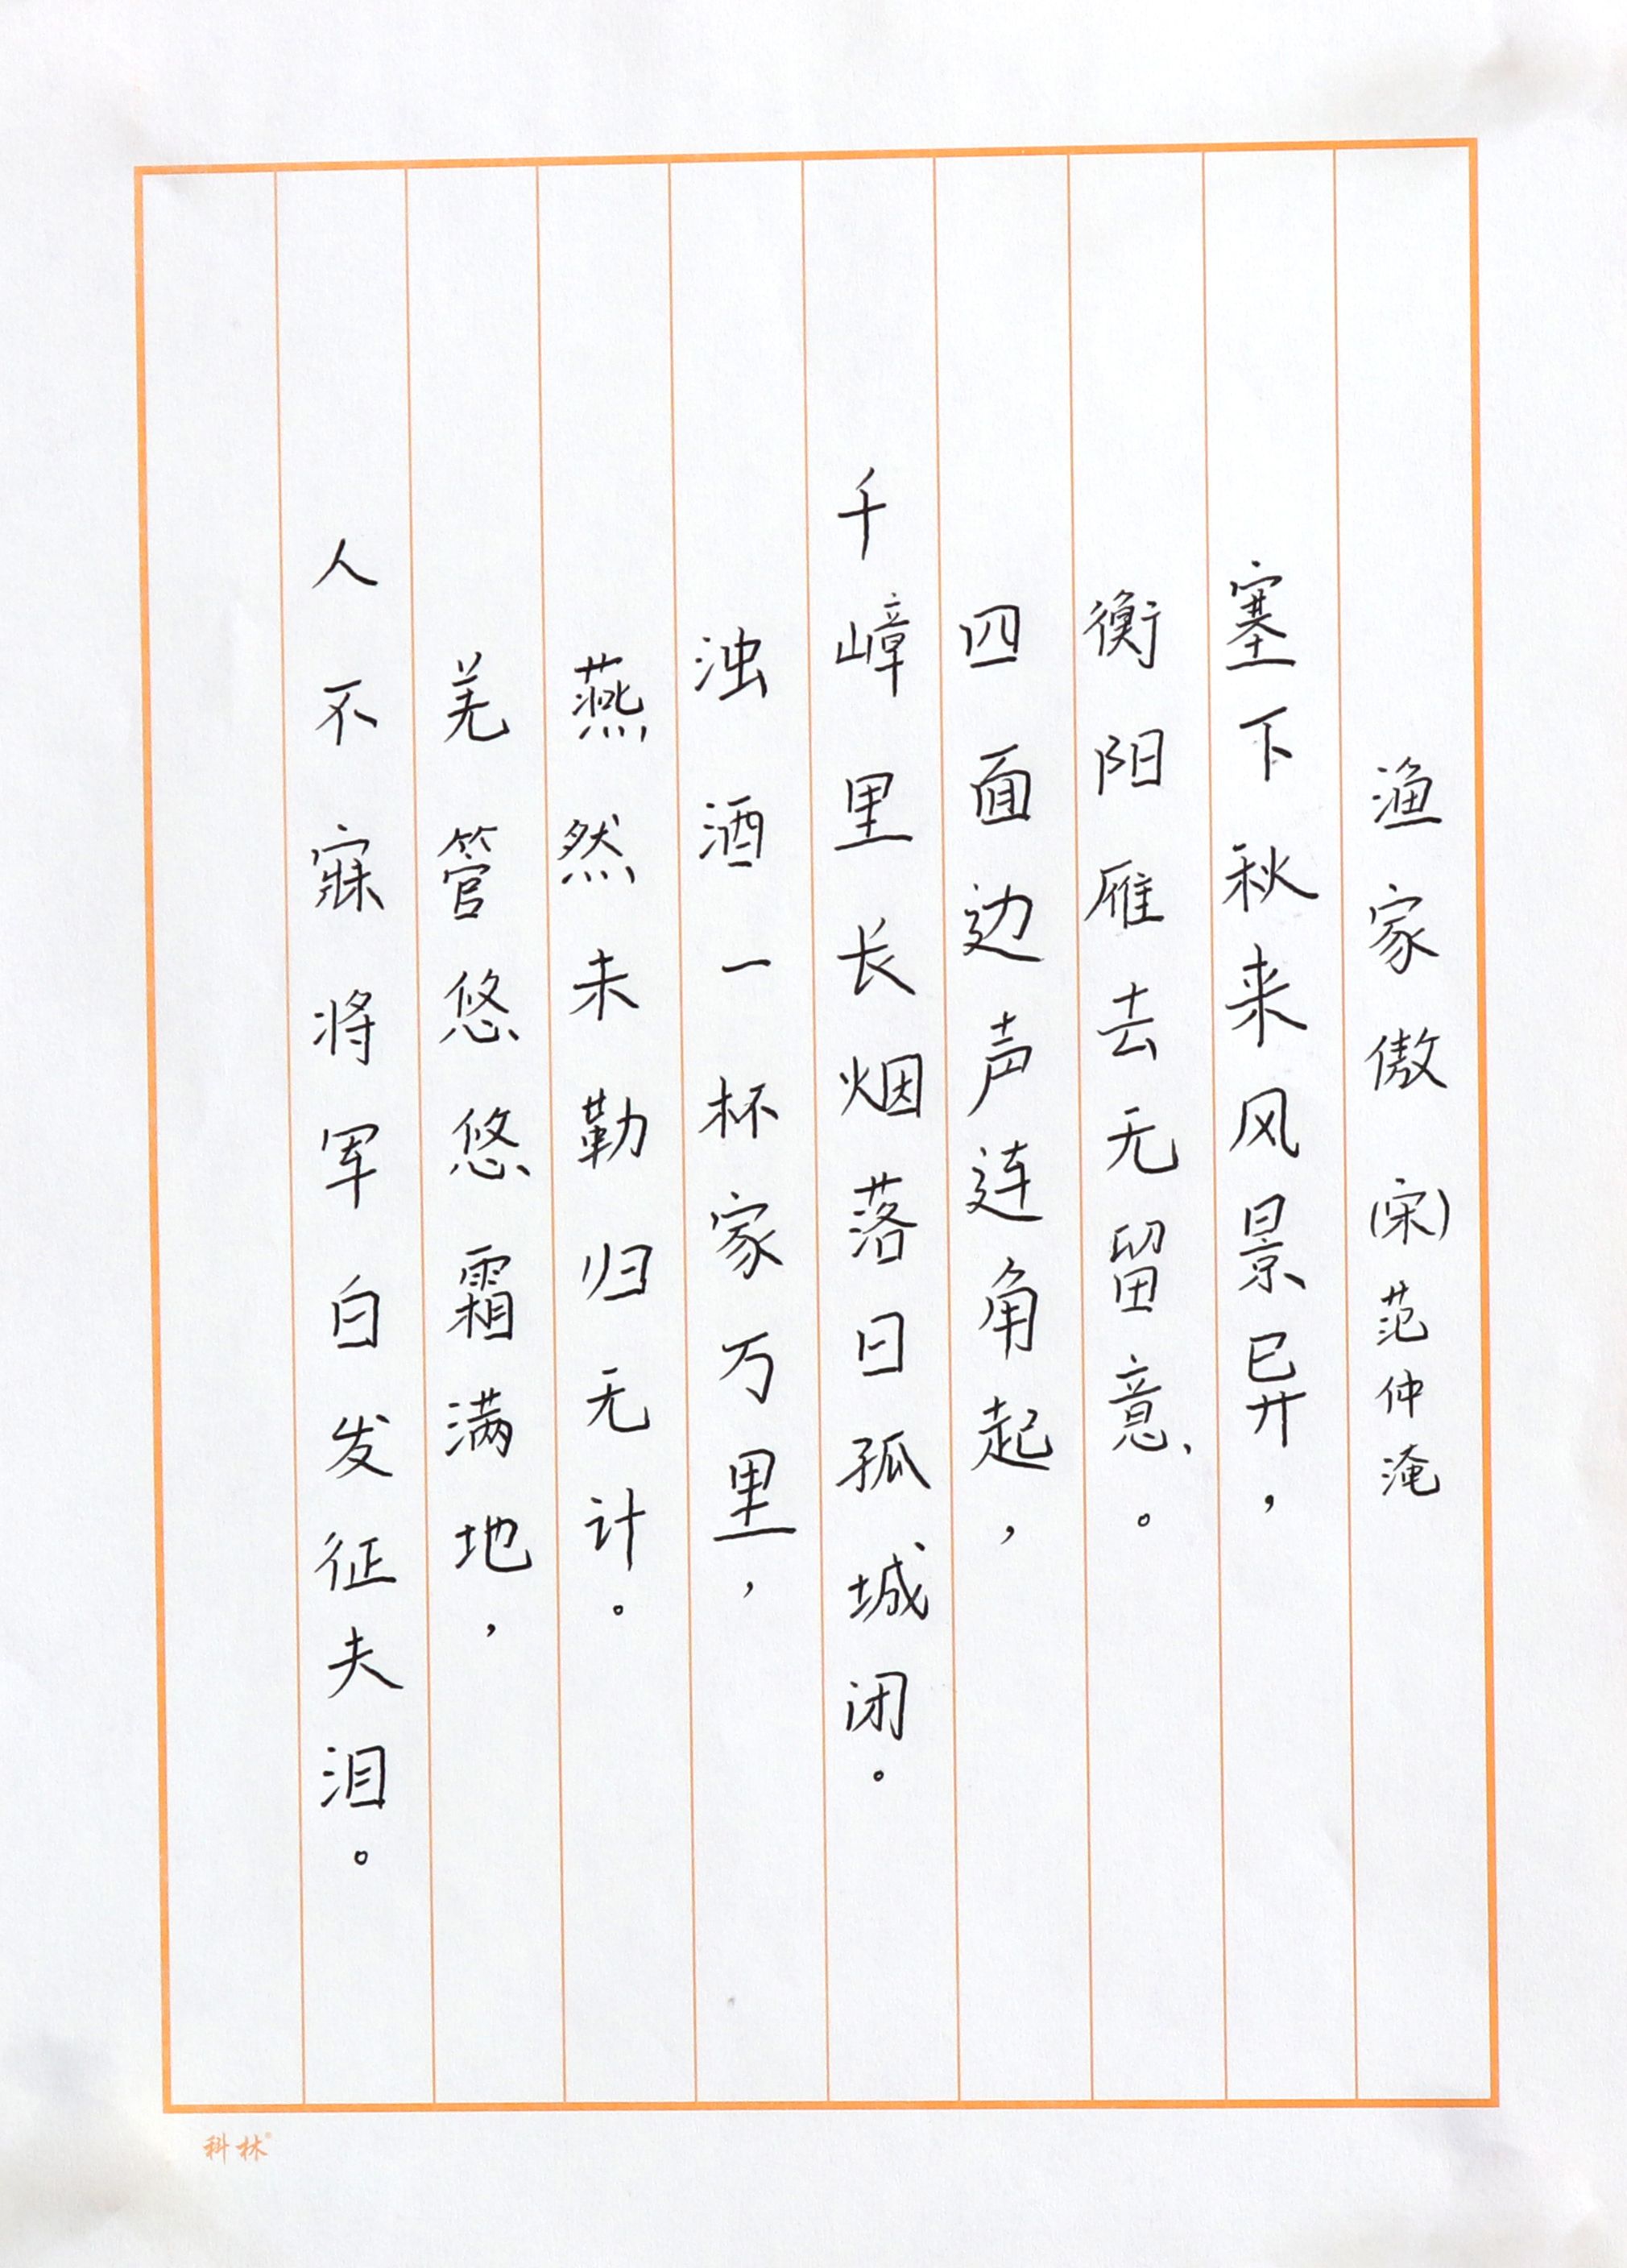 渔家傲 (宋)范仲淹
塞下秋来风景已异，
衡阳雁去无留意。
四面边声连角起，
千嶂里长烟落日孤城闭。
浊酒一杯家万里，
燕然未勒归无计。
羌管悠悠霜满地，
人不寐将军白发征夫泪。
科林®